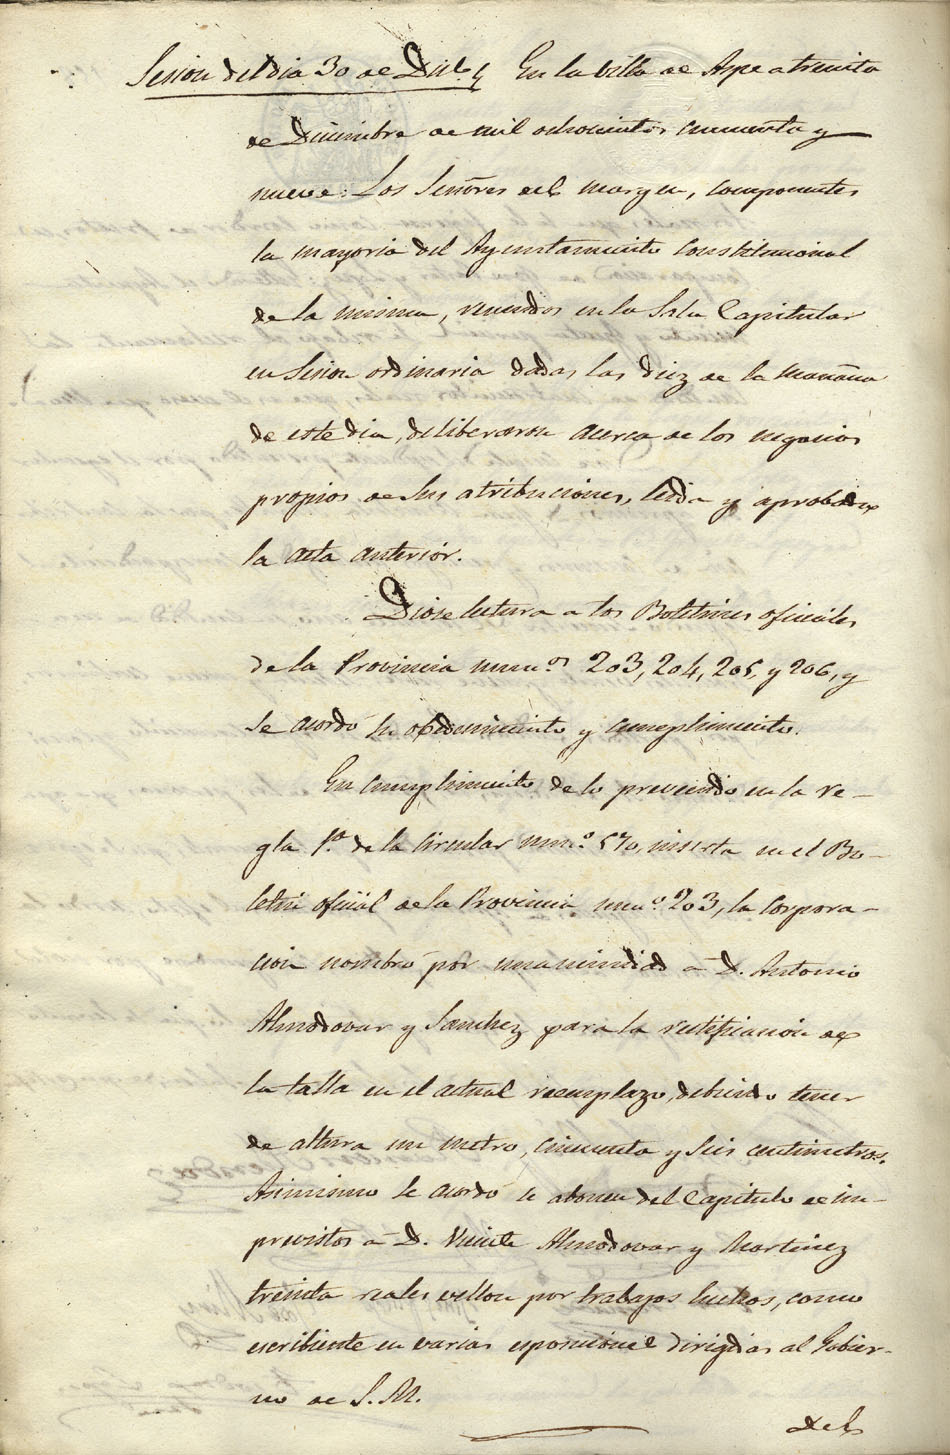 Sesion del dia 30 de Dicbe En la villa de Aspe a treinta
de Diciembre de mil ochocientos cincuenta y
nueve: Los Señores del margen, componentes
la mayoria del Ayuntamiento Constitucional
de la misma, reunidos en la Sala Capitular
en Sesion ordinaria dadas las diez de la mañana
de este dia, deliberaron acerca de los negocios
propios de sus atribuciones, leida y aprobada
la acta anterior.
Diose lectura a los Boletines oficiales
de la Provincia numos 203, 204, 205, y 206, y
se acordó su obedecimiento y cumplimiento.
En cumplimiento de lo prevenido en la re-
gla 1a de la Circular numo 570, inserta en el Bo-
letin oficial de la Provincia numo 203, la Corpora-
cion nombró por unanimidad a D. Antonio
Almodovar y Sanchez para la rectificacion de
la talla en el actual reemplazo, debiendo tener
de altura un metro, cincuenta y seis centimetros.
Asimismo se acordó se abonen del Capitulo de im-
previstos a D. Vicente Almodovar y Martinez
treinta reales vellon por trabajos hechos, como
escribiente en varias esposiciones dirigidas al Gobier-
no de S. M.